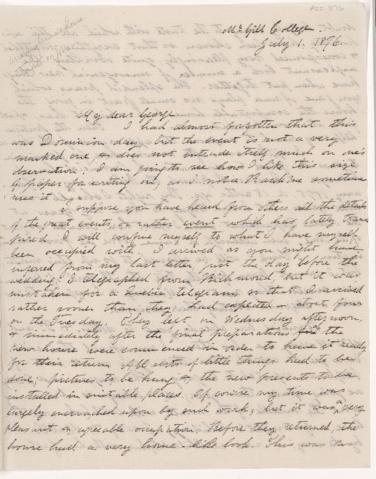 McGill College.
July 1. 1876.
My dear George
I had almost forgotten that this
was Dominion day, but the event is not a very
marked one & does not intrude itself much on one's
observation. I am going to see how I like this size
of paper for writing on, as I notice sometimes
uses it.
I suppose you have heard from others all the details
of the great events, or rather event which has lately trans
pired. I will confine myself to what I have myself
been occupied with. I arrived as you might have
from my last letter just the day before the
wedding. I telegraphed from Richmond but it was
mistaken for a Quebec telegram so that I arrived
rather sooner than they had expected - about four
on the Tuesday. They left on Wednesday afternoon,
& immediately after the final preparations for the
new house were commenced in order to have it ready
for their return. All sorts of little things had to be
done; pictures to be hung & the new presents to be
installed in suitable places. Of course my time was
largely encroached upon by such work; but it was a very
pleasant & agreeable occupation. Before they returned, the
house had a very home-like look. This was on